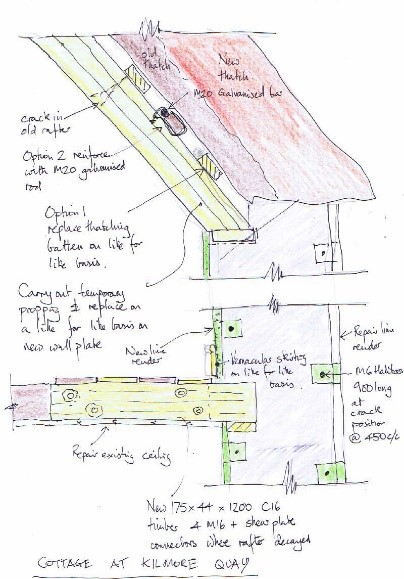 old thatch
New
thatch
M20 Galvanised bar
crack in
old rafter
Option 2 reinforce
with M20 galvanised
rod
Option 1
replace thatching
batten on like for
like basis.
Carry out temporary
propping & replace on
a like for like basis on
new wall plate
New lime
render
Vernacular skirting
on like for like
basis.
Repair lime
render
M6 Helibar
900 long
at
crack
position
@ 450 c/c
Repair existing ceiling
New 175 x 44 x 1200 C16
timber 4 M16 + shear plate
connectors where rafter decayed
COTTAGE AT KILMORE QUAY